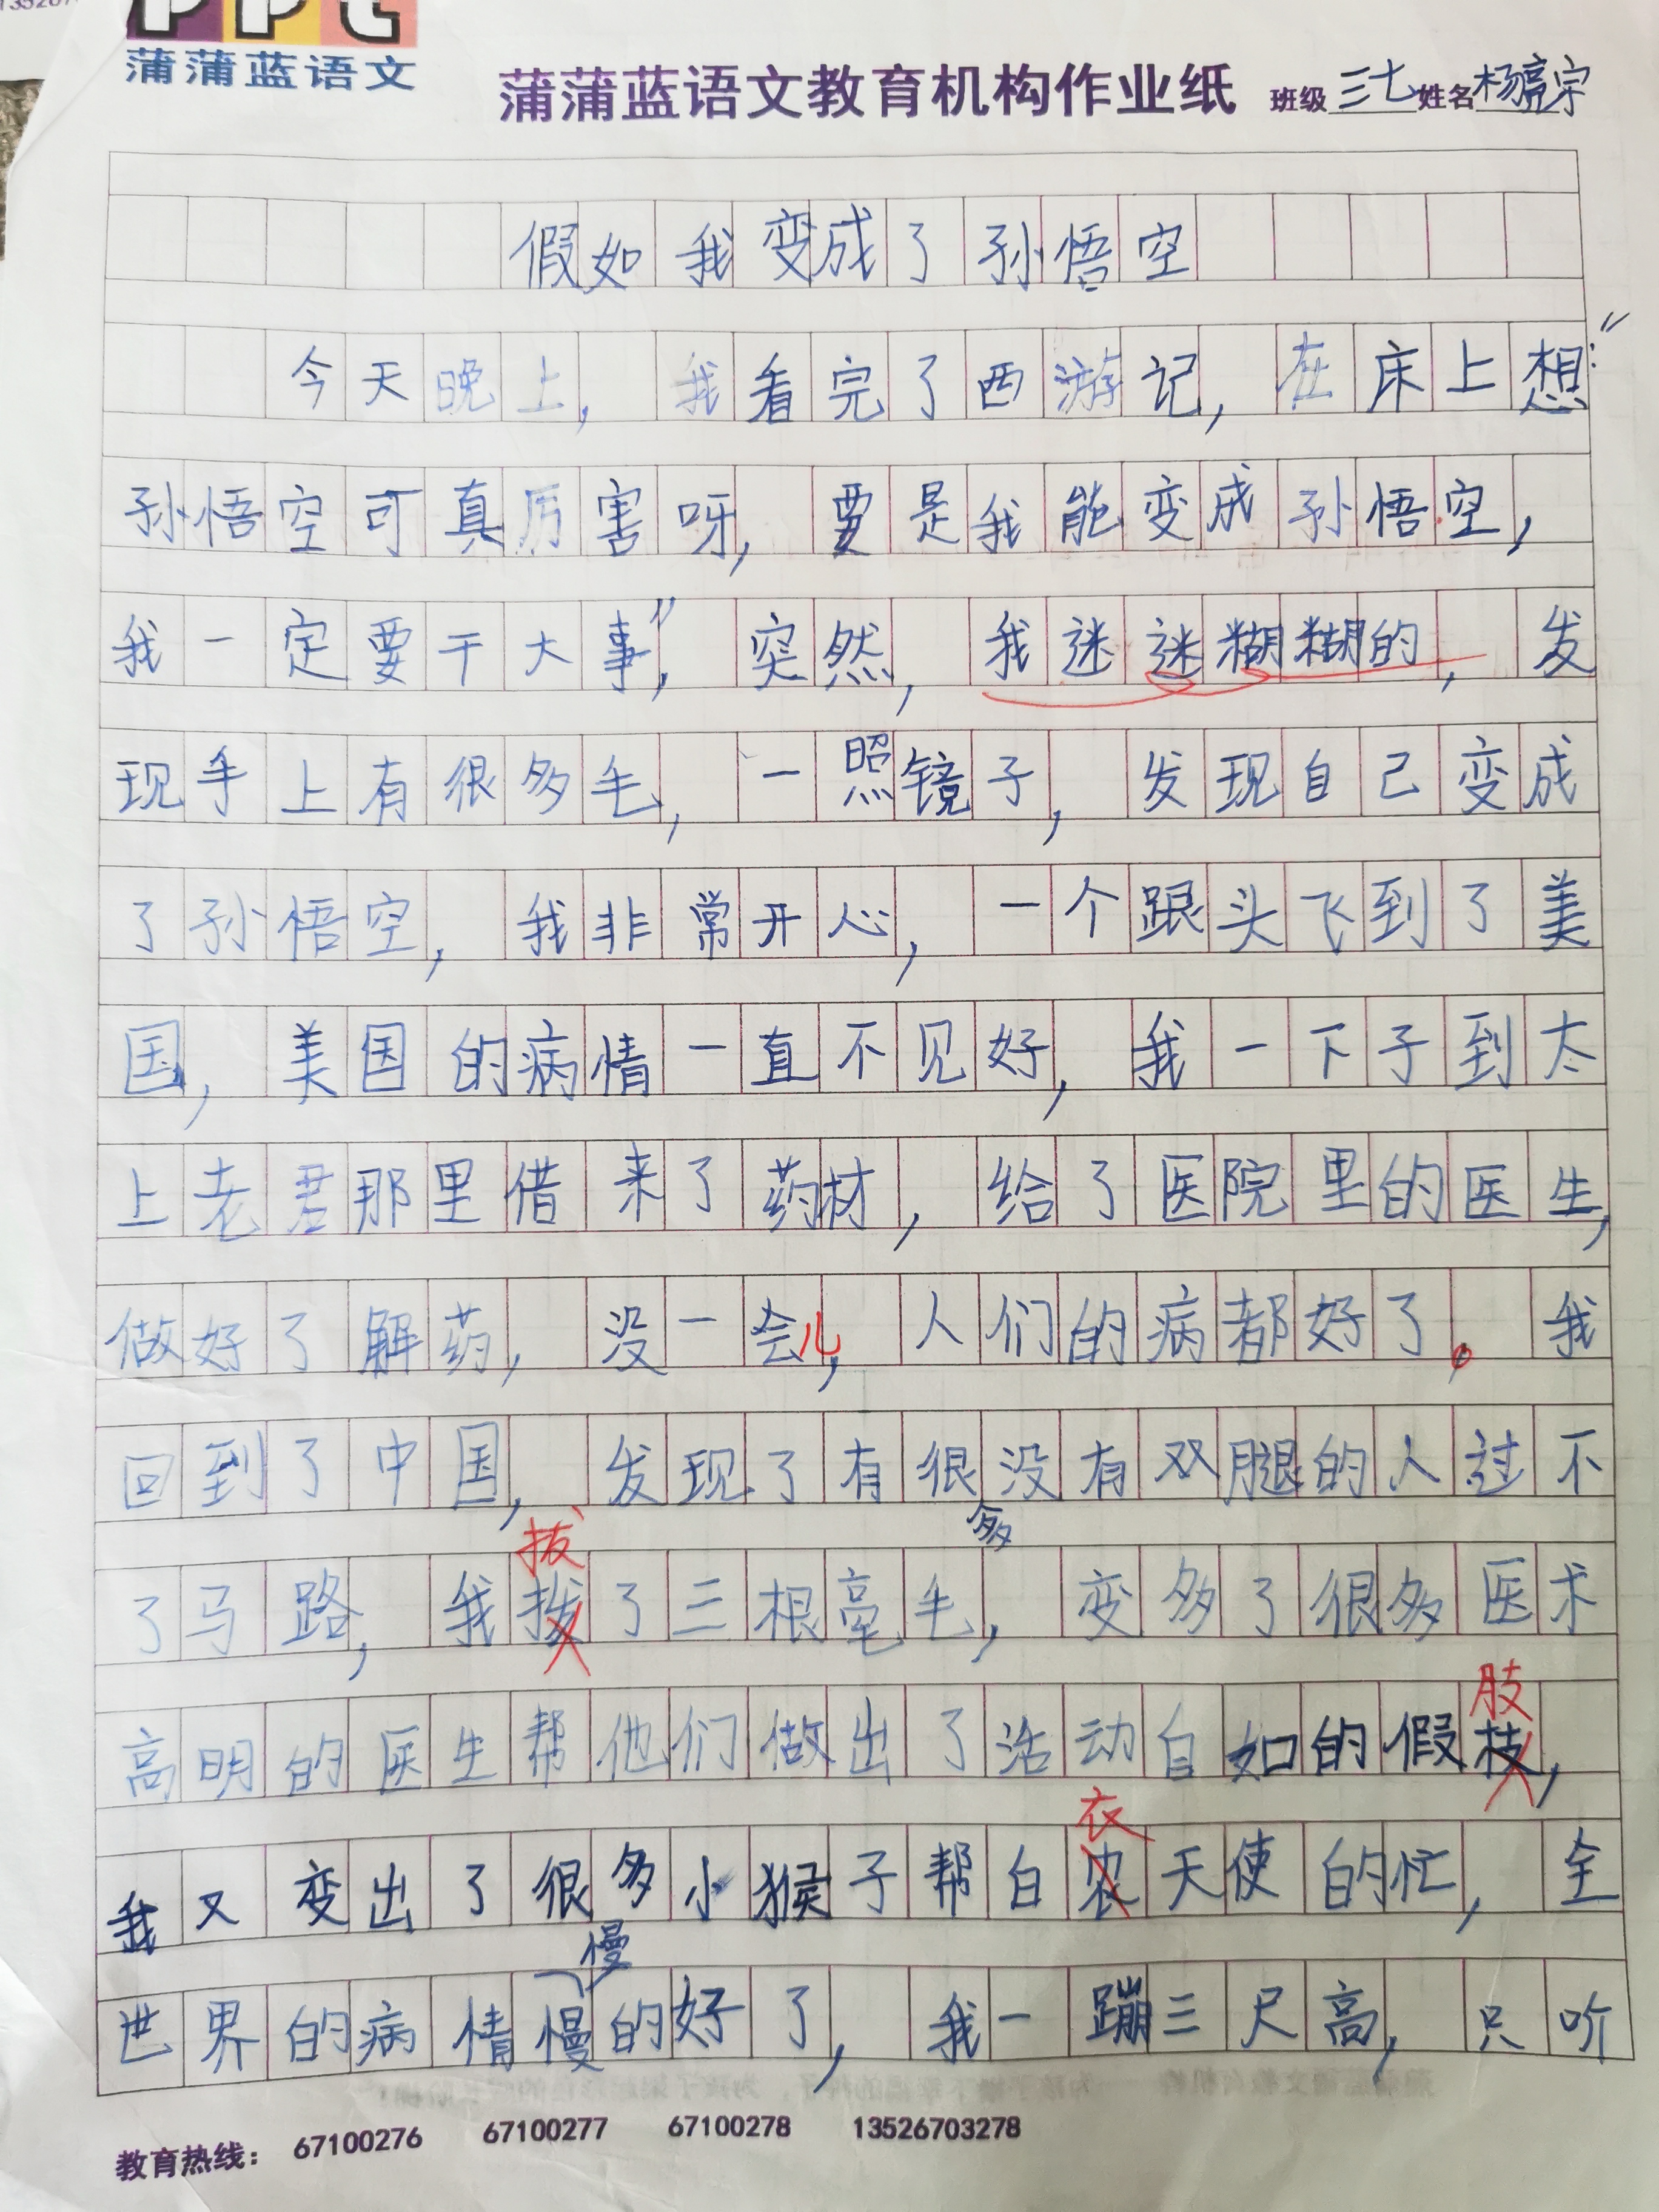 PPL
蒲蒲蓝语文
蒲蒲蓝语文教育机构作业纸 班级 三七 姓名 杨嘉宗
假如我变成了孙悟空
今天晚上,我看完了西游记,在床上想:"
孙悟空可真厉害呀,要是我能变成孙悟空,
我一定要干大事",突然,我迷迷糊糊的,发
现手上有很多毛,一照镜子,发现自己变成
了孙悟空,我非常开心,一个跟头飞到了美
国,美国的病情一直不见好,我一下子到太
上老君那里借来了药材,给了医院里的医生,
做好了解药,没一会儿,人们的病都好了。我
回到了中国,发现了有很多没有双腿的人过不
拔
了马路,我拨了三根毫毛,变多了很多医术
肢
高明的医生帮他们做出了活动自如的假枝,
衣
我又变出了很多小猴子帮白农天使的忙,全
世界的病情慢慢的好了,我一蹦三尺高,只听
教育热线: 67100276 67100277 67100278 13526703278